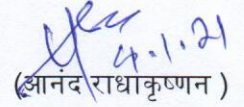 4.1.21
(आनंद राधाकृष्णन )